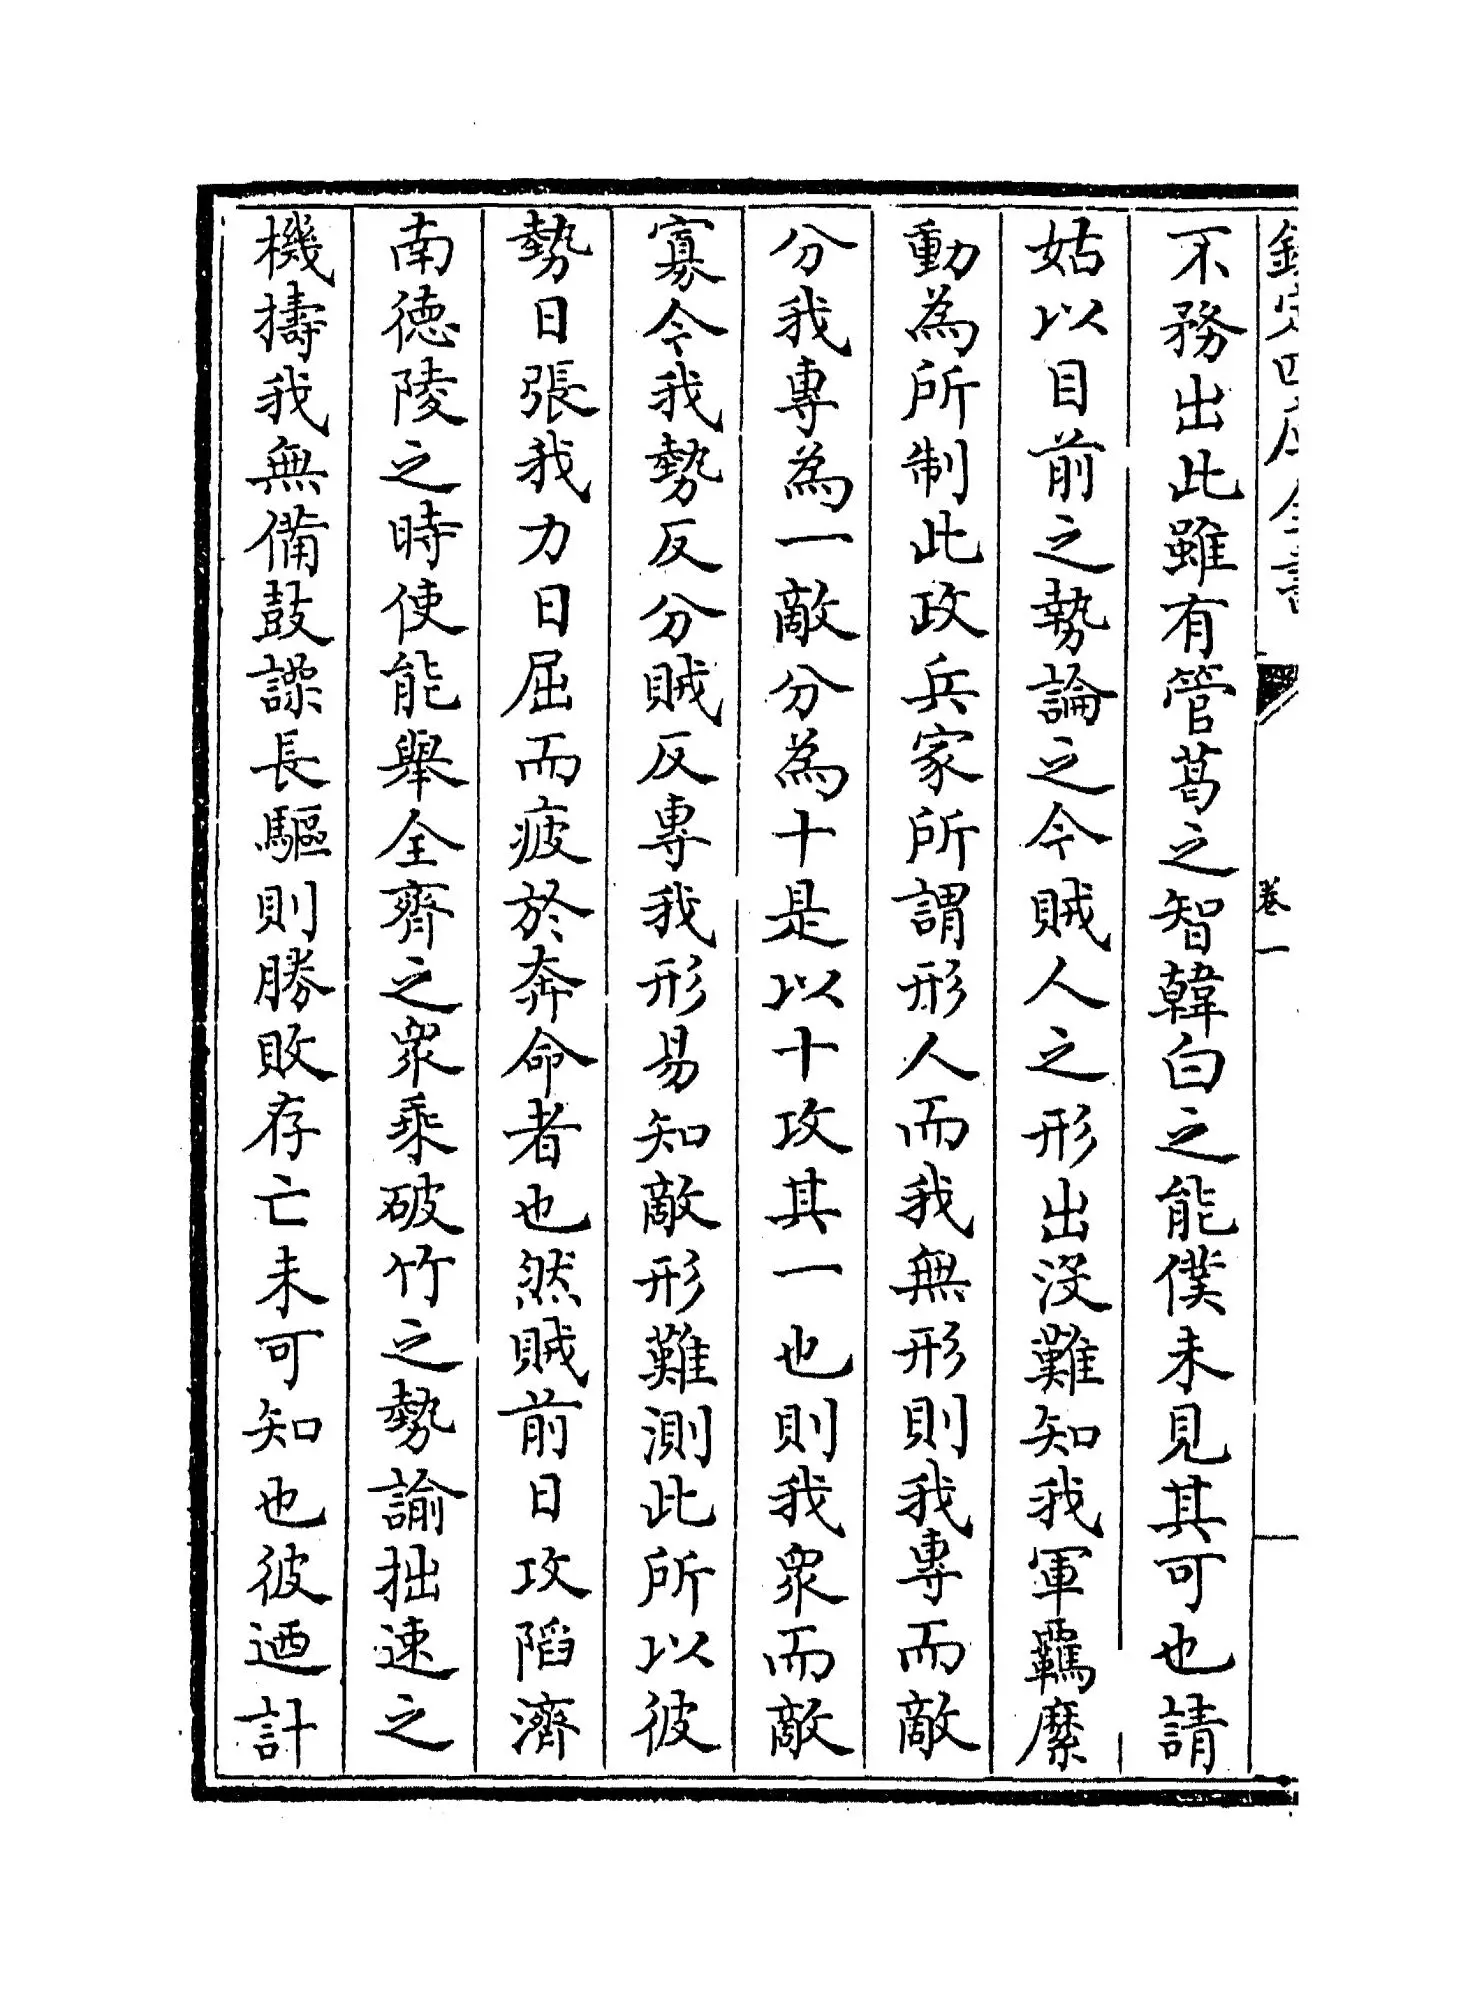 欽定四庫全書
卷一
不務出此雖有管葛之智韓白之能僕未見其可也請
姑以目前之勢論之今賊人之形出沒難知我軍羈縻
動為所制此政兵家所謂形人而我無形則我專而敵
分我專為一敵分為十是以十攻其一也則我衆而敵
寡今我勢反分賊反專我形易知敵形難測此所以彼
勢日張我力日屈而疲於奔命者也然賊前日攻陷濟
南德陵之時使能舉全齊之衆乘破竹之勢諭拙速之
機擣我無備鼓譟長驅則勝敗存亡未可知也彼迺計